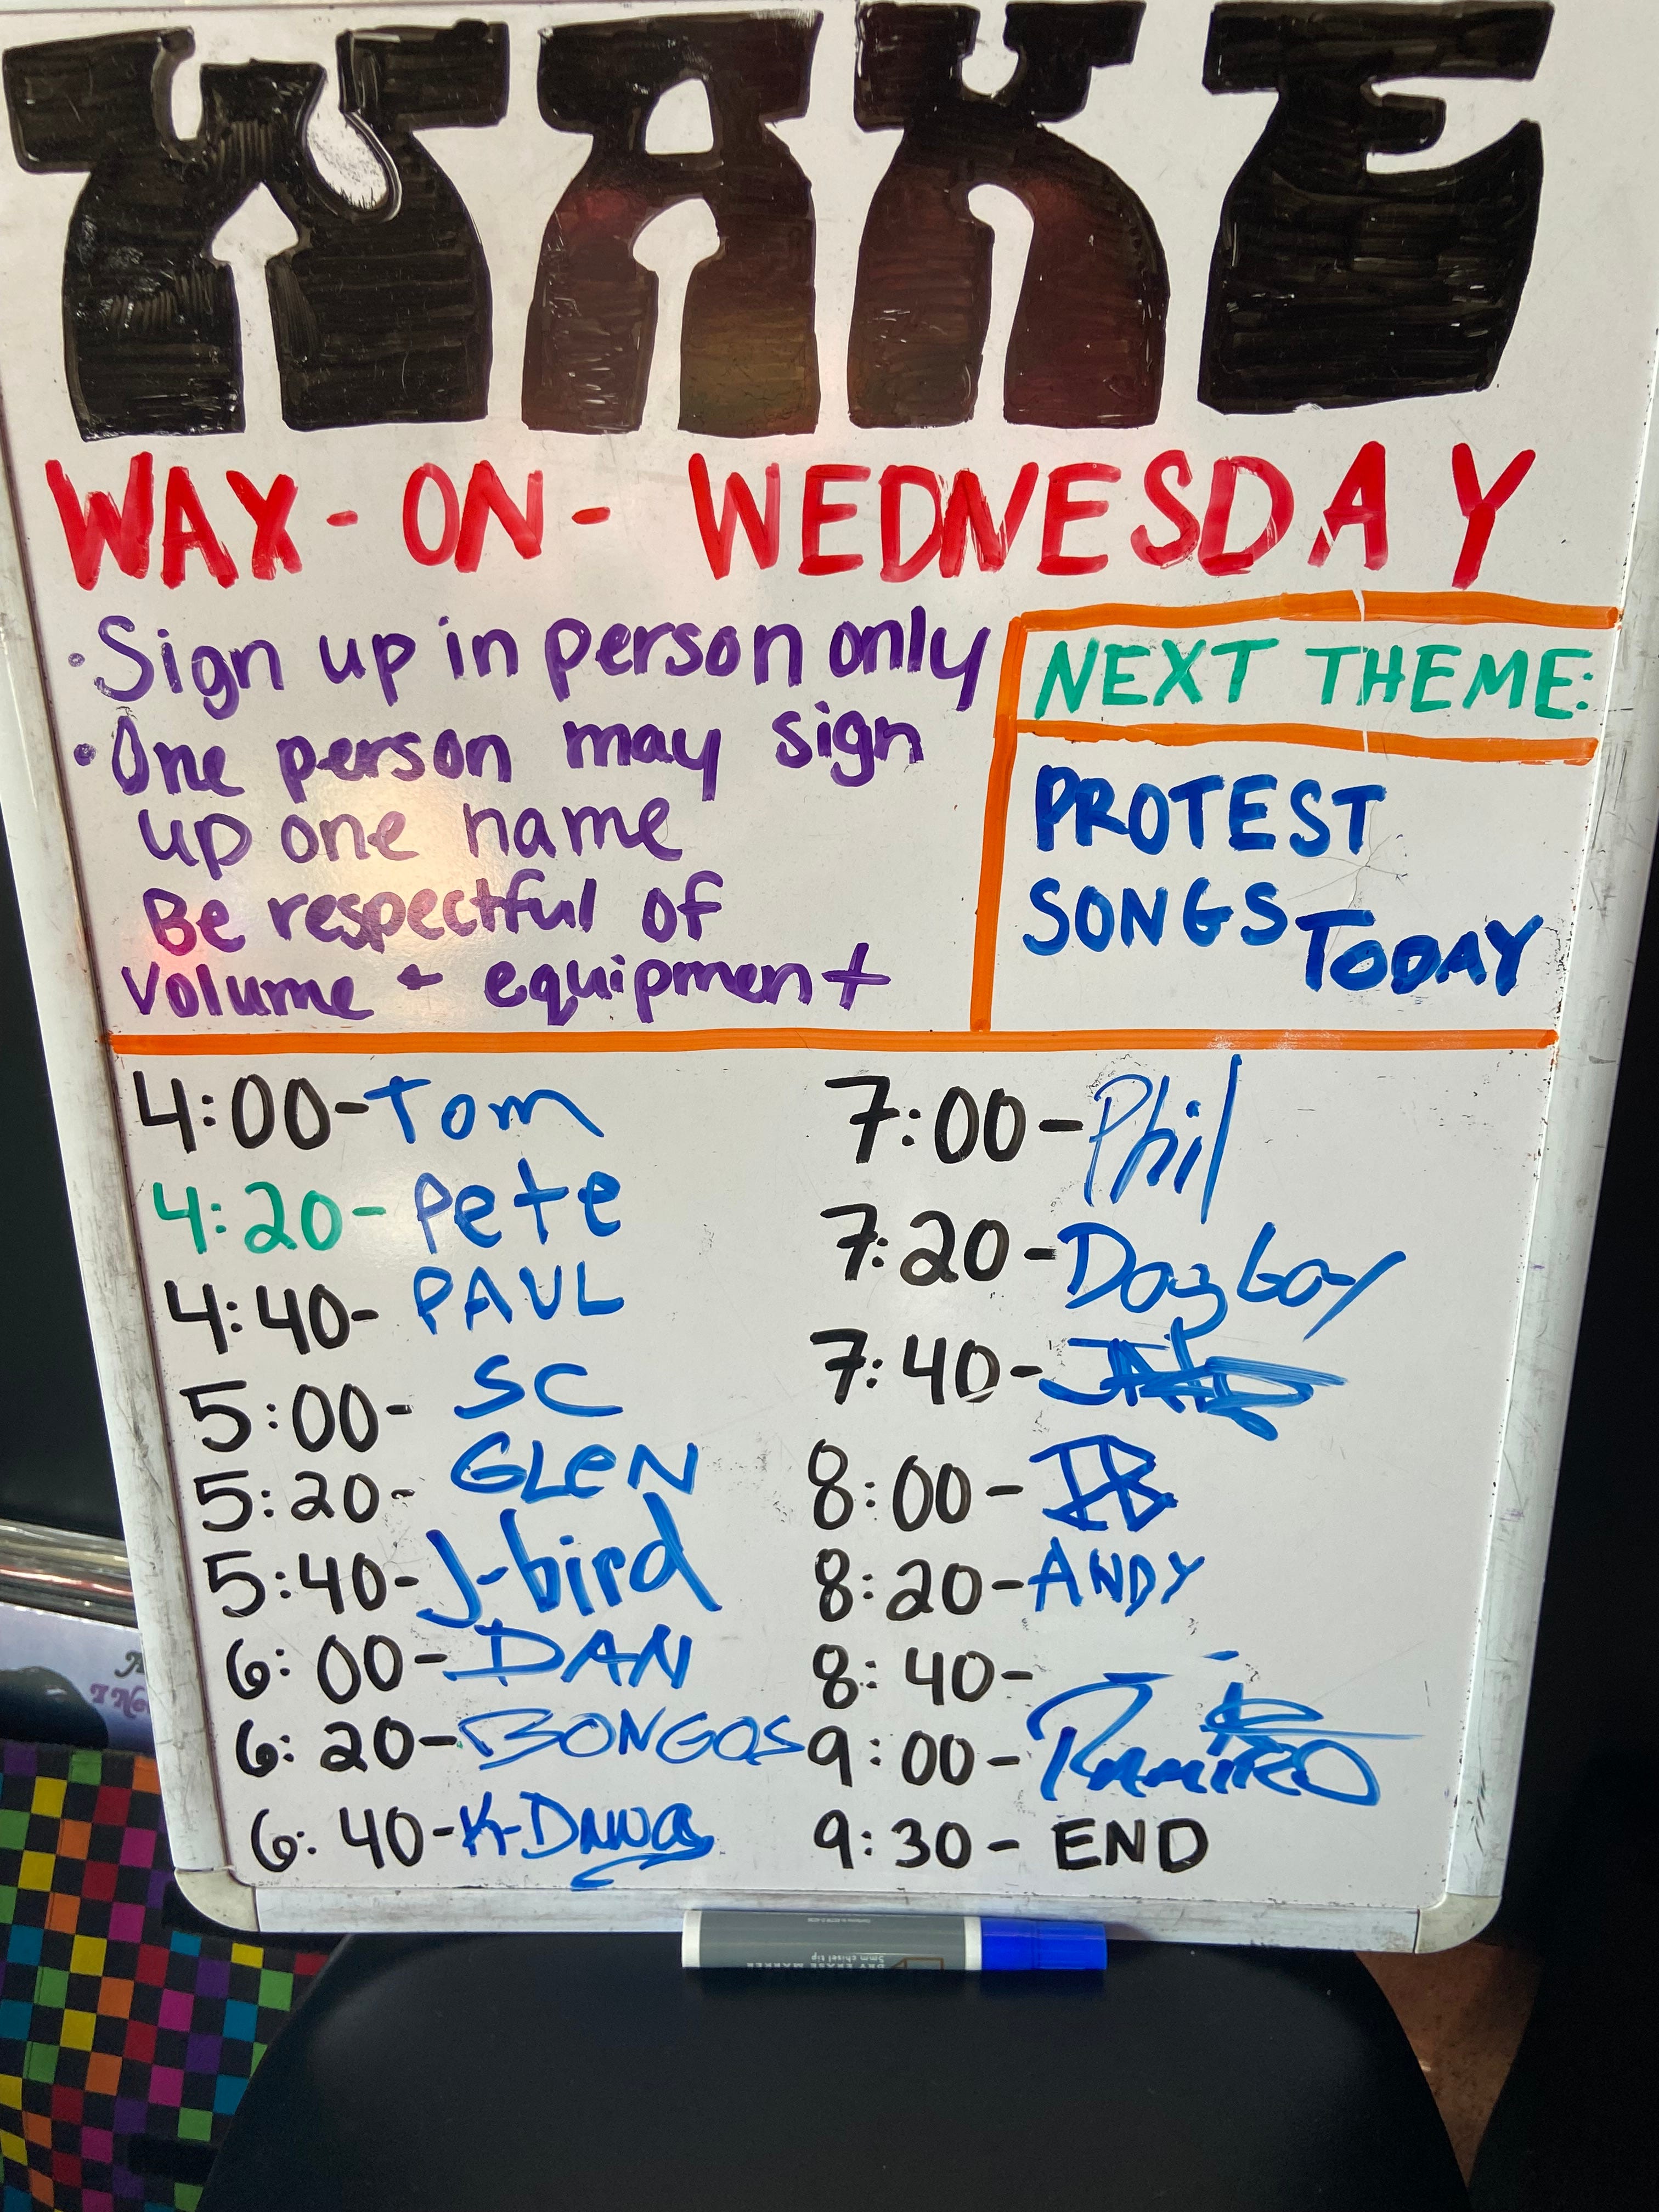 WAKE
WAX-ON-WEDNESDAY
• Sign up in person only
• One person may sign
up one name
Be respectful of
Volume + equipment
NEXT THEME:
PROTEST
SONGS TODAY
4:00-Tom
4:20-Pete
4:40-PAUL
5:00-SC
5:20-GLeN
5:40-J-bird
6:00-DAN
6:20-BONGOS
6:40-K-DAWG
7:00-Phil
7:20-Dogboy
7:40-
8:00-
8:20-ANDY
8:40-
9:00-Ramiro
9:30-END
DRY ERASE MARKER
5mm chisel tip